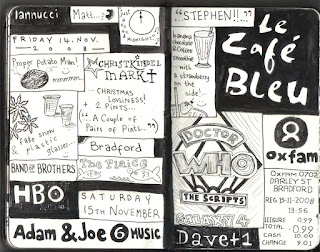 Iannucci
Matt...
FRIDAY 14. NOV.
2008
Proper Potato Man!
mmmmm...
CHRISTKINDEL
MARKT
CHRISTMAS
LOVELINESS!
2 PINTS...
"A Couple of
Pairs of Pints..."
Fake snow
plastic
glasses...
Bradford
BAND OF BROTHERS
The Plaice
HBO
SATURDAY
15TH NOVEMBER
Adam & Joe 6 MUSIC
"STEPHEN!!.."
chocolate
smoothie
with
a strawberry
on the
side!
Le
Café
Bleu
DOCTOR
WHO
THE SCRIPTS
GALAXY 4
Dave+1
Oxfam
OXFAM 0702
DARLEY ST
BRADFORD
REG 15-11-2008
13:56
LEISURE 0.99
TOTAL 0.99
CASH 10.00
CHANGE 9.01